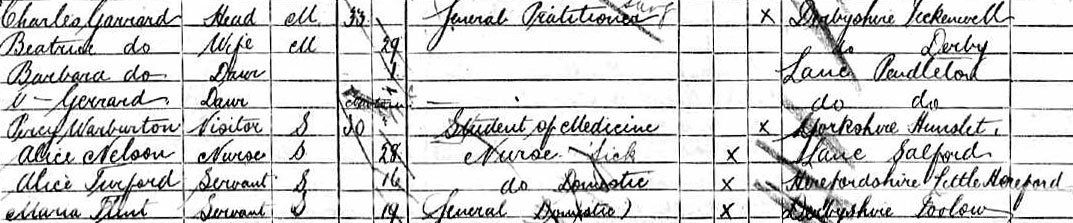 Charles Garrard Head M 33 General Pratitioner Surg X Derbyshire
Beatrice do Wife M 29 do Derby
Barbara do Daur 1 Lanc Pendleton
U - Gerrard Daur do do
Percy Warburton Visitor S 30 Student of Medicine X Yorkshire Hunslet
Alice Nelson Nurse S 28 Nurse Sick X Lanc Salford
Alice Turford Servant S 16 do Domestic X Herefordshire Little Hereford
Maria Flint Servant S 19 General Domestic) X Derbyshire Foolow